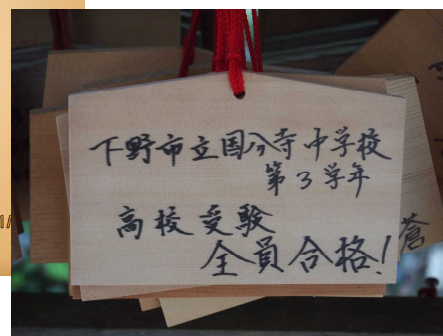 下野市立国分寺中学校
第3学年
高校受験
全員合格!
蒼